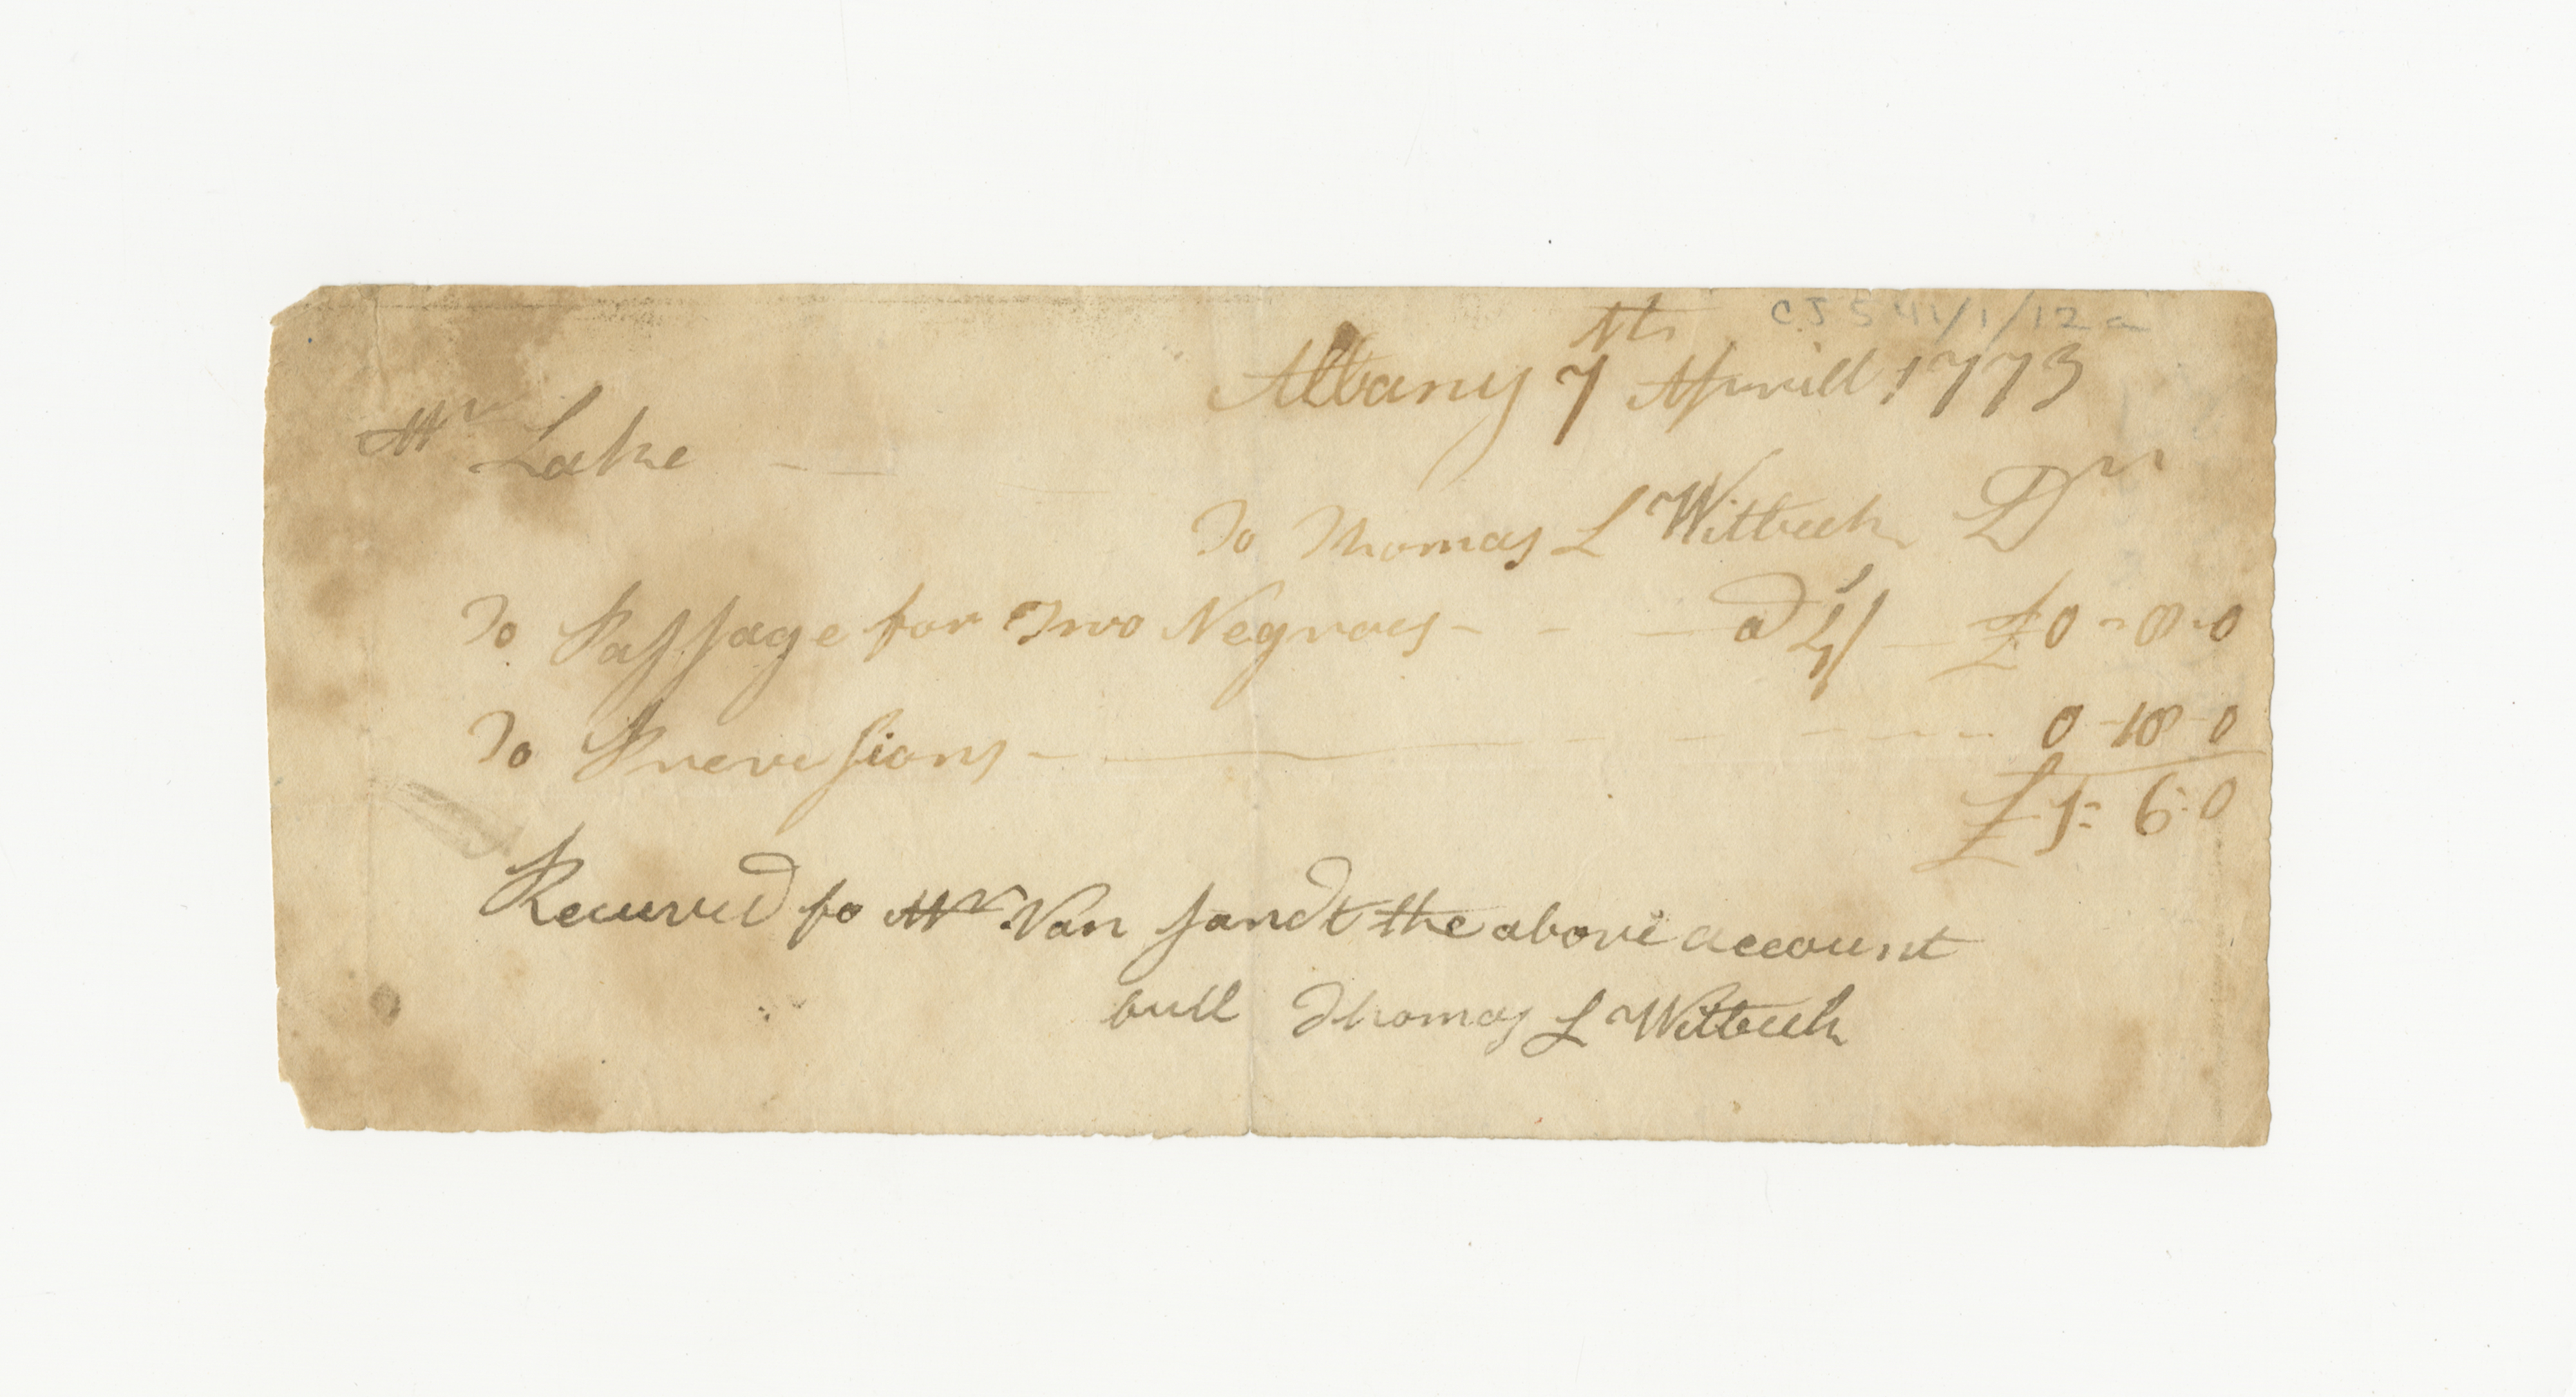 CJ 541/1/12a
Albany 7th Aprill 1773
Mr Lake
To Thomas L Witbeck Dr
To Passage for Two Negroes - - - a 4/ - £0 - 8 - 0
To Provisions - - - 0 - 18 - 0
£1: 6: 0
Received fo Mr Van Sandt the above account
bull Thomas L Witbeck